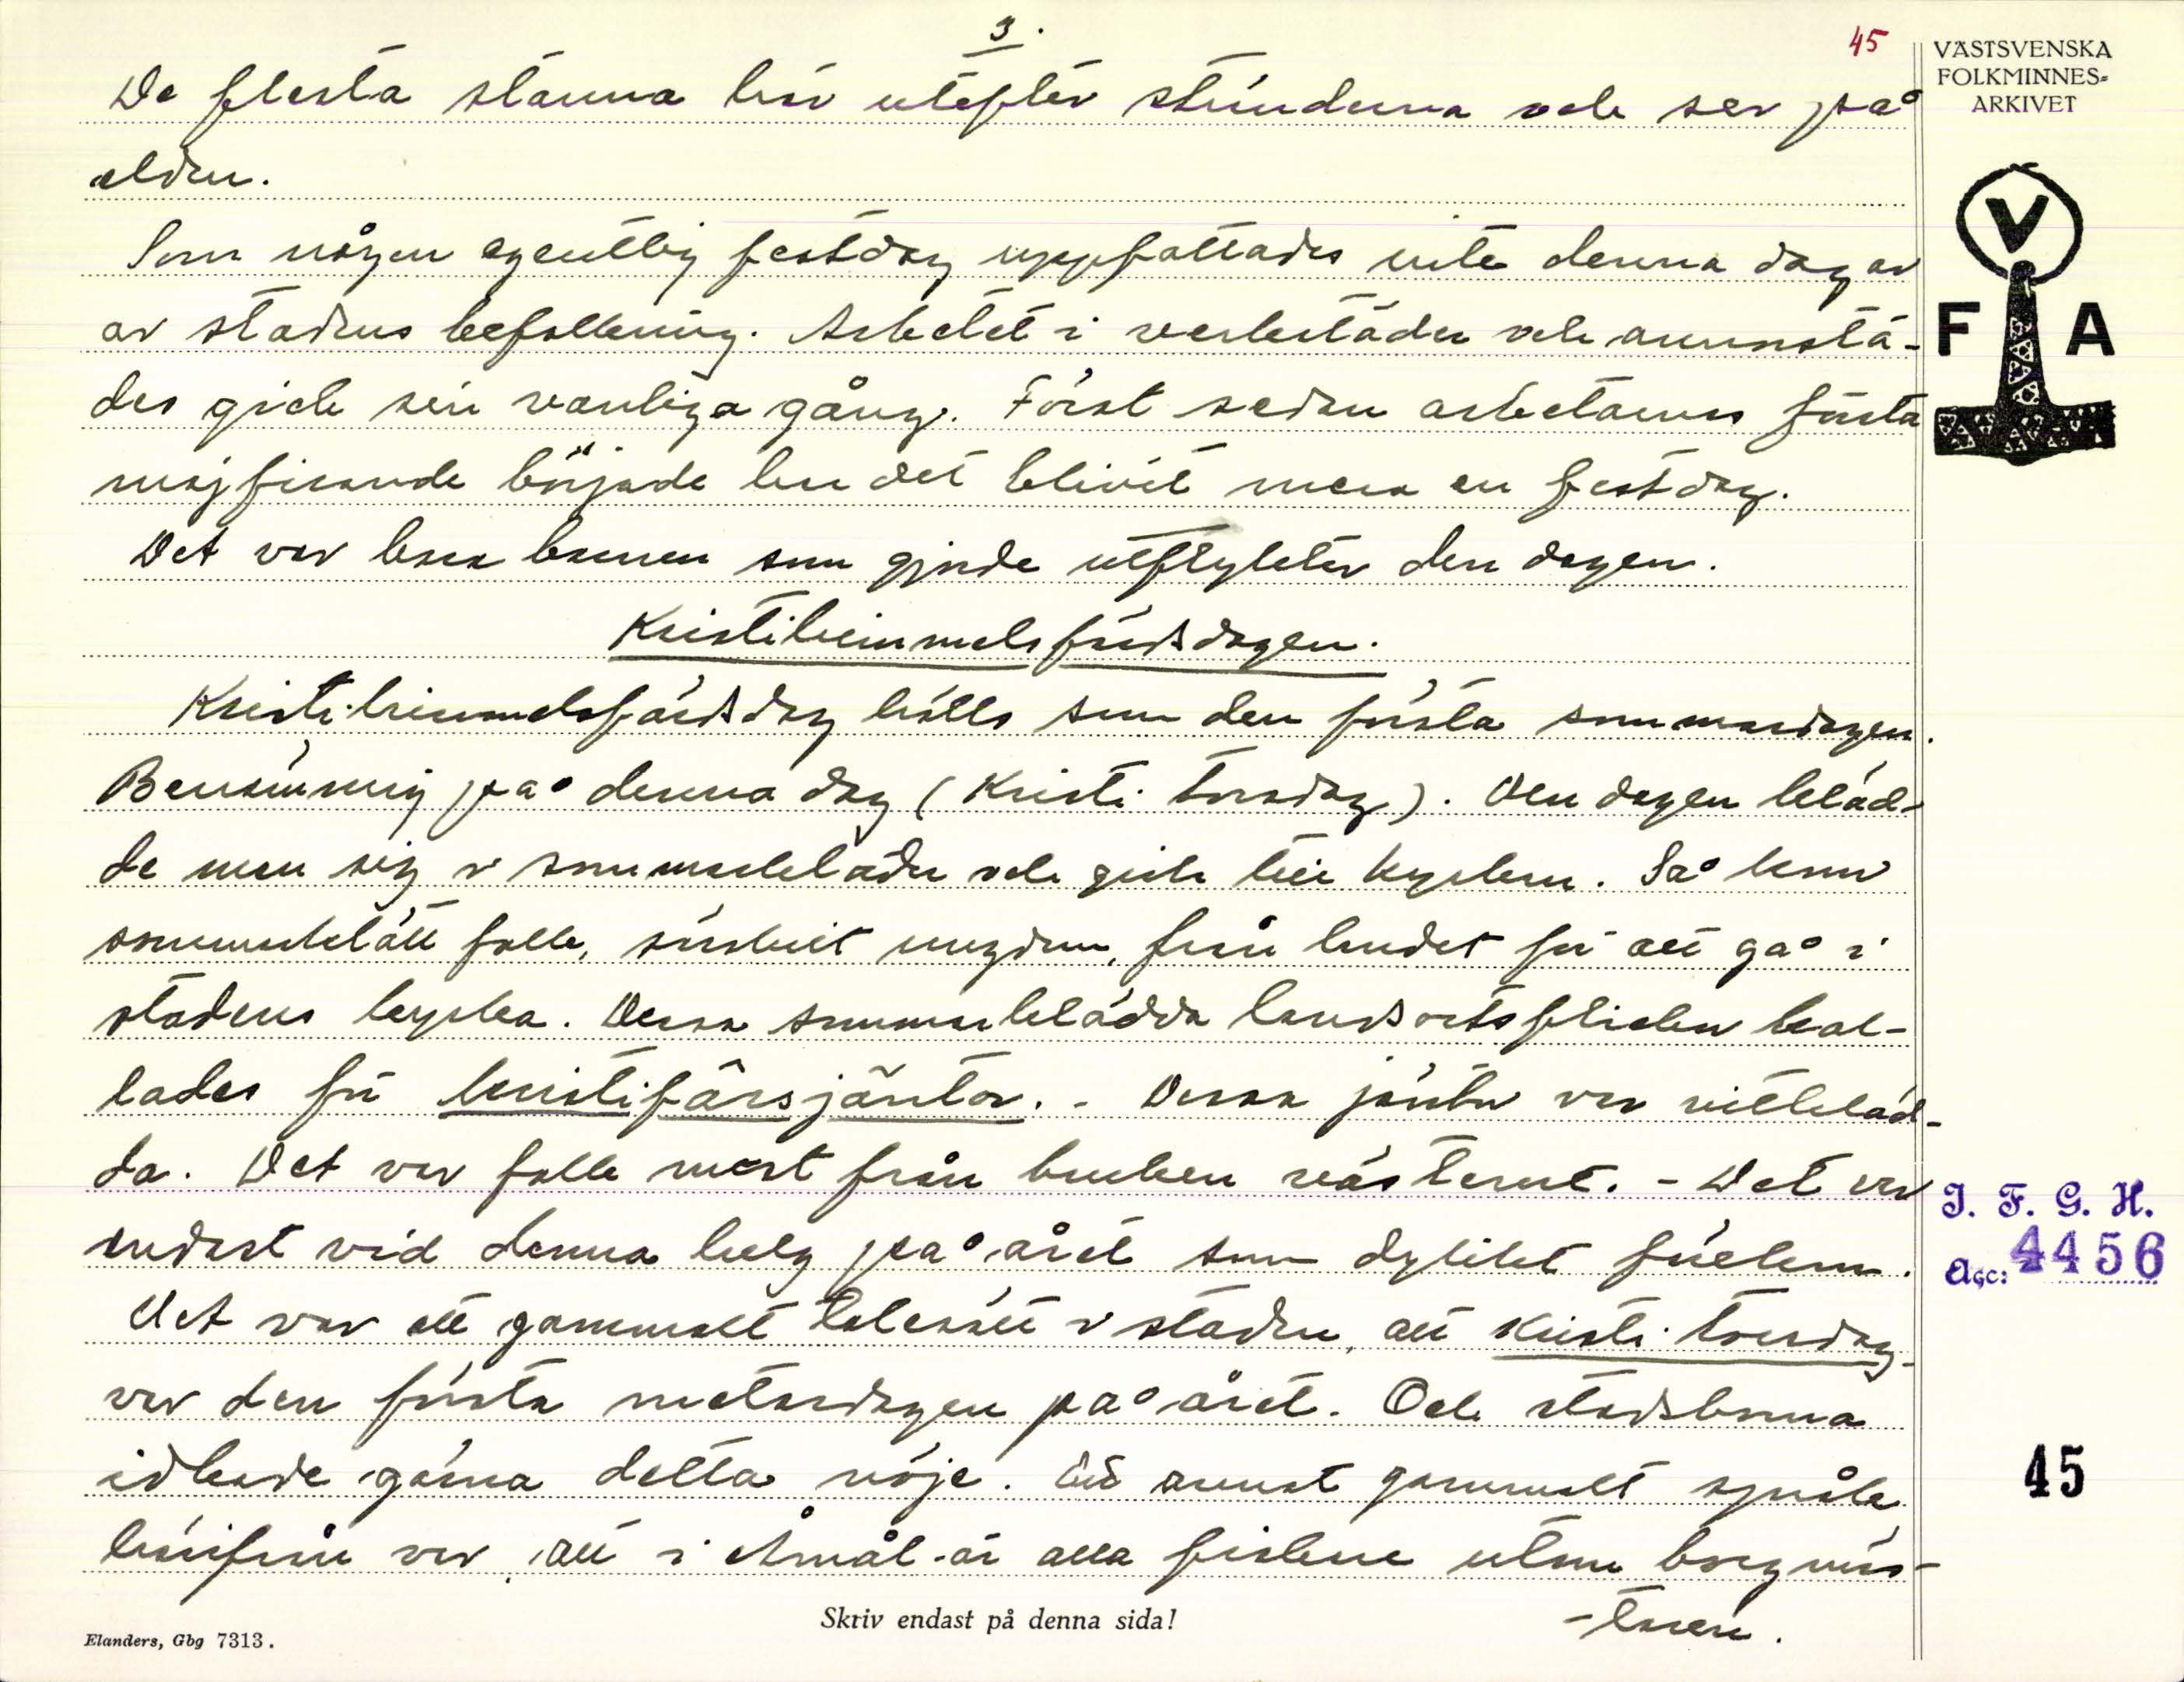 3.
45
De flesta stanna här utefter stränderna och ser på
elden.
Som någon egentlig festdag uppfattades inte denna dag av
av stadens befolkning. Arbetet i verkstäder och annorstä-
des gick sin vanliga gång. Först sedan arbetarnas första
majfirande började har det blivit mera en festdag.
Det var bara barnen som gjorde utflykter den dagen.
Kristihimmelsfärdsdagen.
Kristihimmelsfärdsdag hölls som den första sommardagen.
Benämning på denna dag (Kristi torsdag). Den dagen kläd-
de man sig i sommarkläder och gick till kyrkan. Så kom
sommarklätt folk, särskilt ungdom, från landet för att gå i
stadens kyrka. Dessa sommarklädda landsortsflickor kal-
lades för kristifärsjäntor. - Dessa jäntor var vitkläd-
da. Det var folk mest från bruken västerut. - Det var
endast vid denna helg på året som dylikt förekom.
Det var ett gammalt talesätt i staden, att Kristi torsdag
var den första metardagen på året. Och stadsborna
idkade gärna detta nöje. Ett annat gammalt språk
härifrån var, att i Åmål är alla fiskare utom borgmäs-
-taren.
Skriv endast på denna sida!
Elanders, Gbg 7313.
VÄSTSVENSKA
FOLKMINNES-
ARKIVET
V
F A
I. F. G. H.
Acc: 4456
45